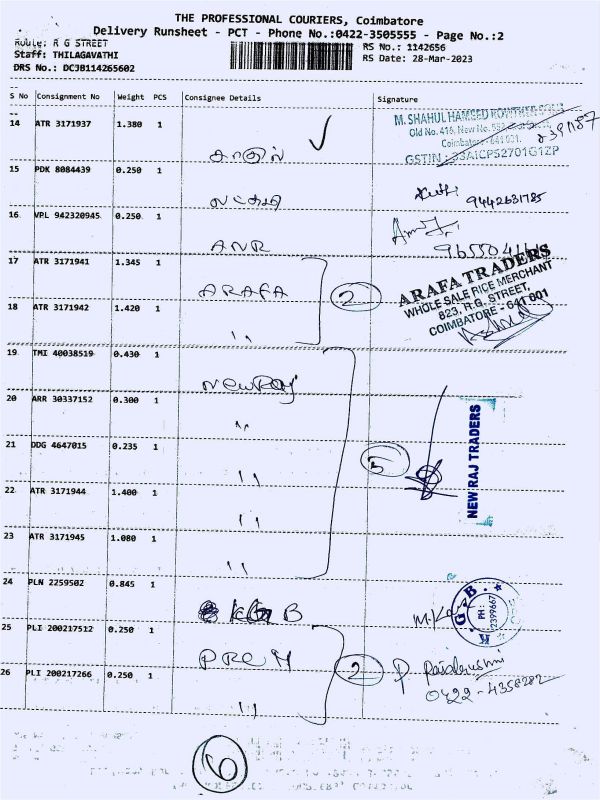 THE PROFESSIONAL COURIERS, Coimbatore
Delivery Runsheet - PCT - Phone No.:0422-3505555 - Page No.:2
Route: R G STREET
Staff: THILAGAVATHI
DRS No.: DCJB114265602
RS No.: 1142656
RS Date: 28-Mar-2023
S No Consignment No Weight PCS Consignee Details Signature
14 ATR 3171937 1.380 1
M. SHAHUL HAMEED ROWTHER SONS
Old No. 416, New No.
Coimbatore - 641 001.
GSTIN : 33AICPS2701G1ZP
2391187
15 PDK 8084439 0.250 1
9442631785
16 VPL 942320945 0.250 1 ANR
17 ATR 3171941 1.345 1 ARAFA
2
ARAFA TRADERS
WHOLE SALE RICE MERCHANT
823, R.G. STREET,
COIMBATORE - 641 001
18 ATR 3171942 1.420 1 ,,
19 TMI 40038519 0.430 1 New Raj
20 ARR 30337152 0.300 1 ,,
21 DDG 4647015 0.235 1 ,,
5
NEW RAJ TRADERS
22 ATR 3171944 1.400 1 ,,
23 ATR 3171945 1.080 1 ,,
24 PLN 2259502 0.845 1
K.G.B.
PH :
2399667
25 PLI 200217512 0.250 1 PREM
2
26 PLI 200217266 0.250 1 ,,
0422-4358282
6